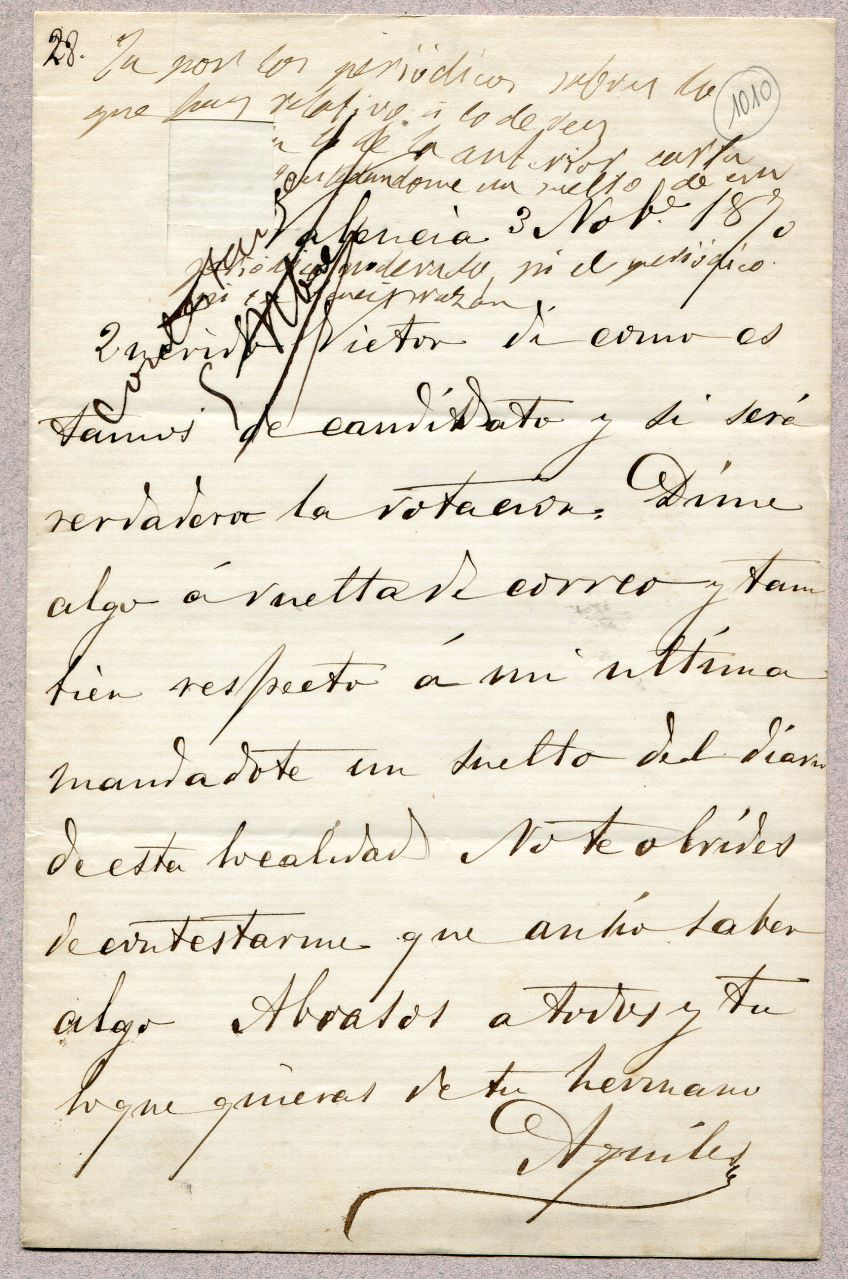 28.
1010
Ya por los periódicos sabras lo
que hay relativo á lo de
de la anterior carta
mandandome un suelto de un
Valencia 3 Nobe. 1870
periodico moderado, ni el periódico
ni
Contestar
Querido Victor di como es
tamos de candidato y si será
verdadera la votacion. Dime
algo á vuelta de correo y tam
bien respecto á mi ultima
mandadote un suelto del diario
de esta localidad No te olvides
de contestarme que ansio saber
algo Abrasos a todos y tu
lo que quieras de tu hermano
Aquiles